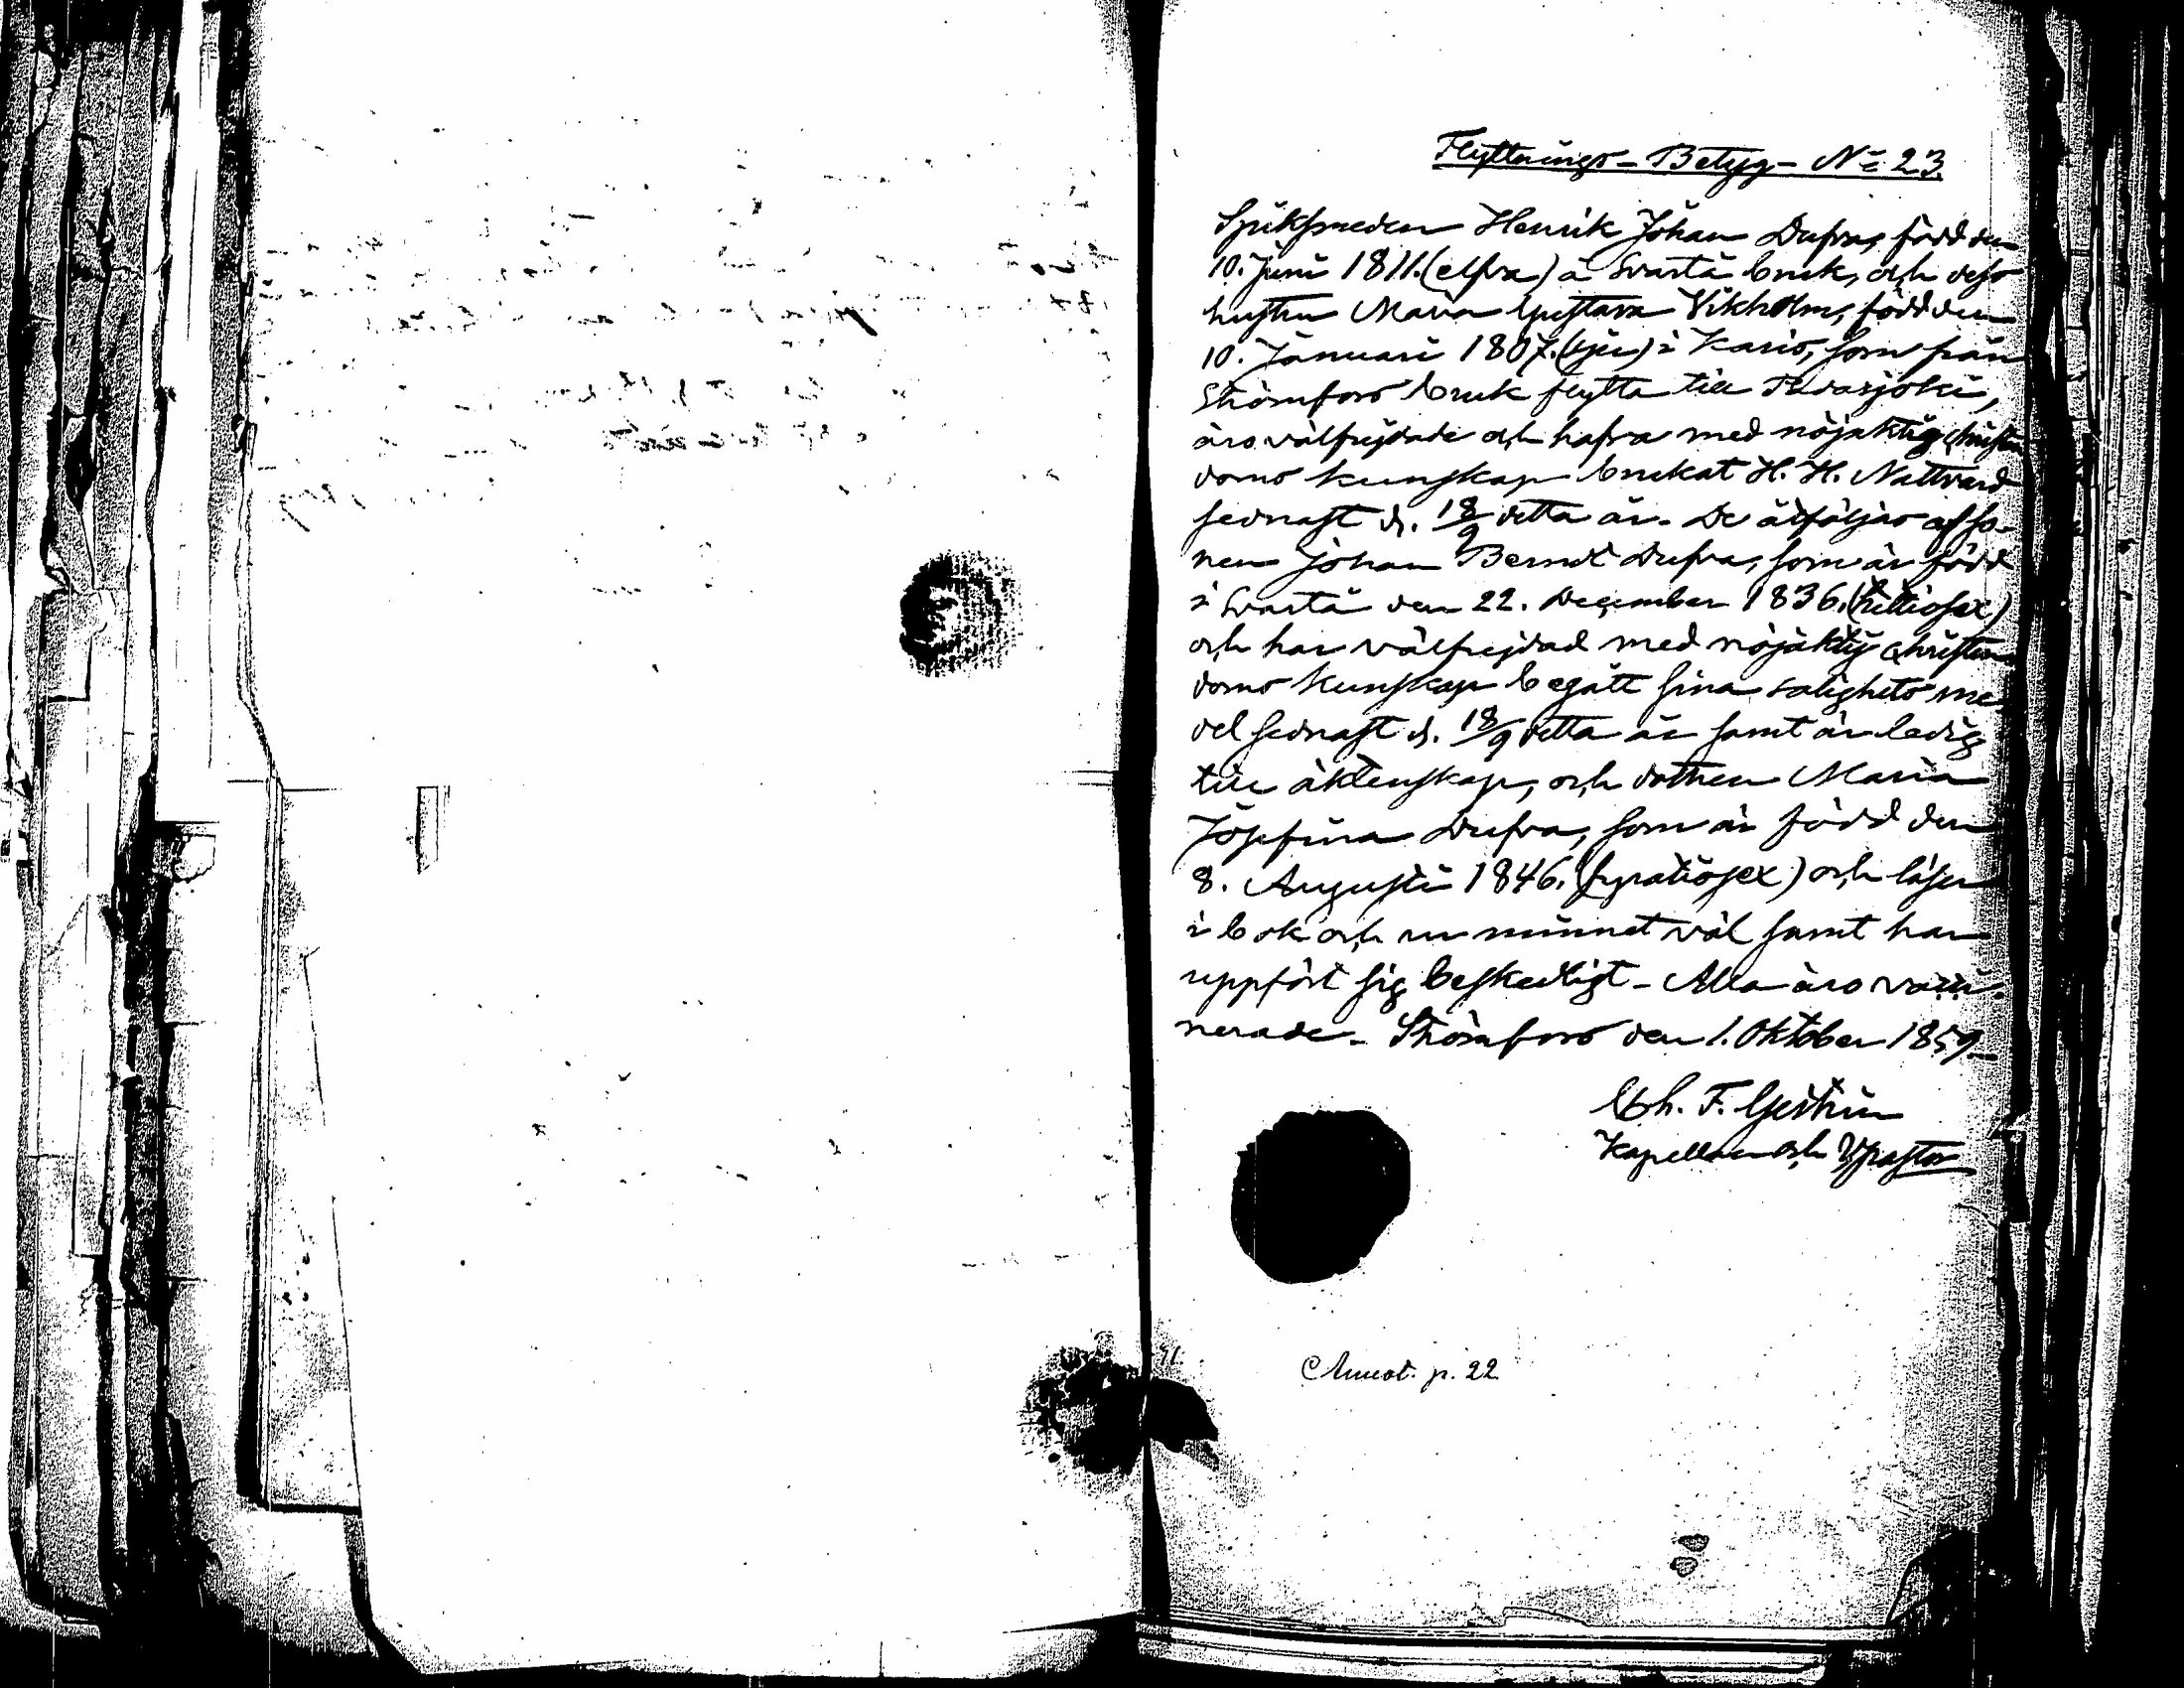 Flyttnings-Betyg- No 23.
Spiksmeden Henrik Johan Dufva, född den
10. Juni 1811. (elfva) å Svartå bruk, och dess
hustru Maria Gustava Vikholm, född den
10. Januari 1807. (sju) i Karis, som från
Strömfors bruk flytta till
äro välfrejdade och hafva med nöjaktig christen
doms kunskap brukat H. H. Nattvard
sednast d. 18/9 detta år. De åtföljas af so-
nen Johan Berndt Dufva, som är född
i Svartå den 22. December 1836. (trettiosex)
och har välfrejdad med nöjaktig christen
doms kunskap begått sina salighets me
del sednast d. 18/9 detta år samt är ledig
till äktenskap, och dottren Maria
Josefina Dufva, som är född den
8. Augusti 1846. (fyratiosex) och läser
i bok och ur minnet väl samt har
uppfört sig beskedligt - Alla äro vacci-
nerade. Strömfors den 1. Oktober 1859.
F. Gestrin
Kapellan och V pastor
Annot. p. 22